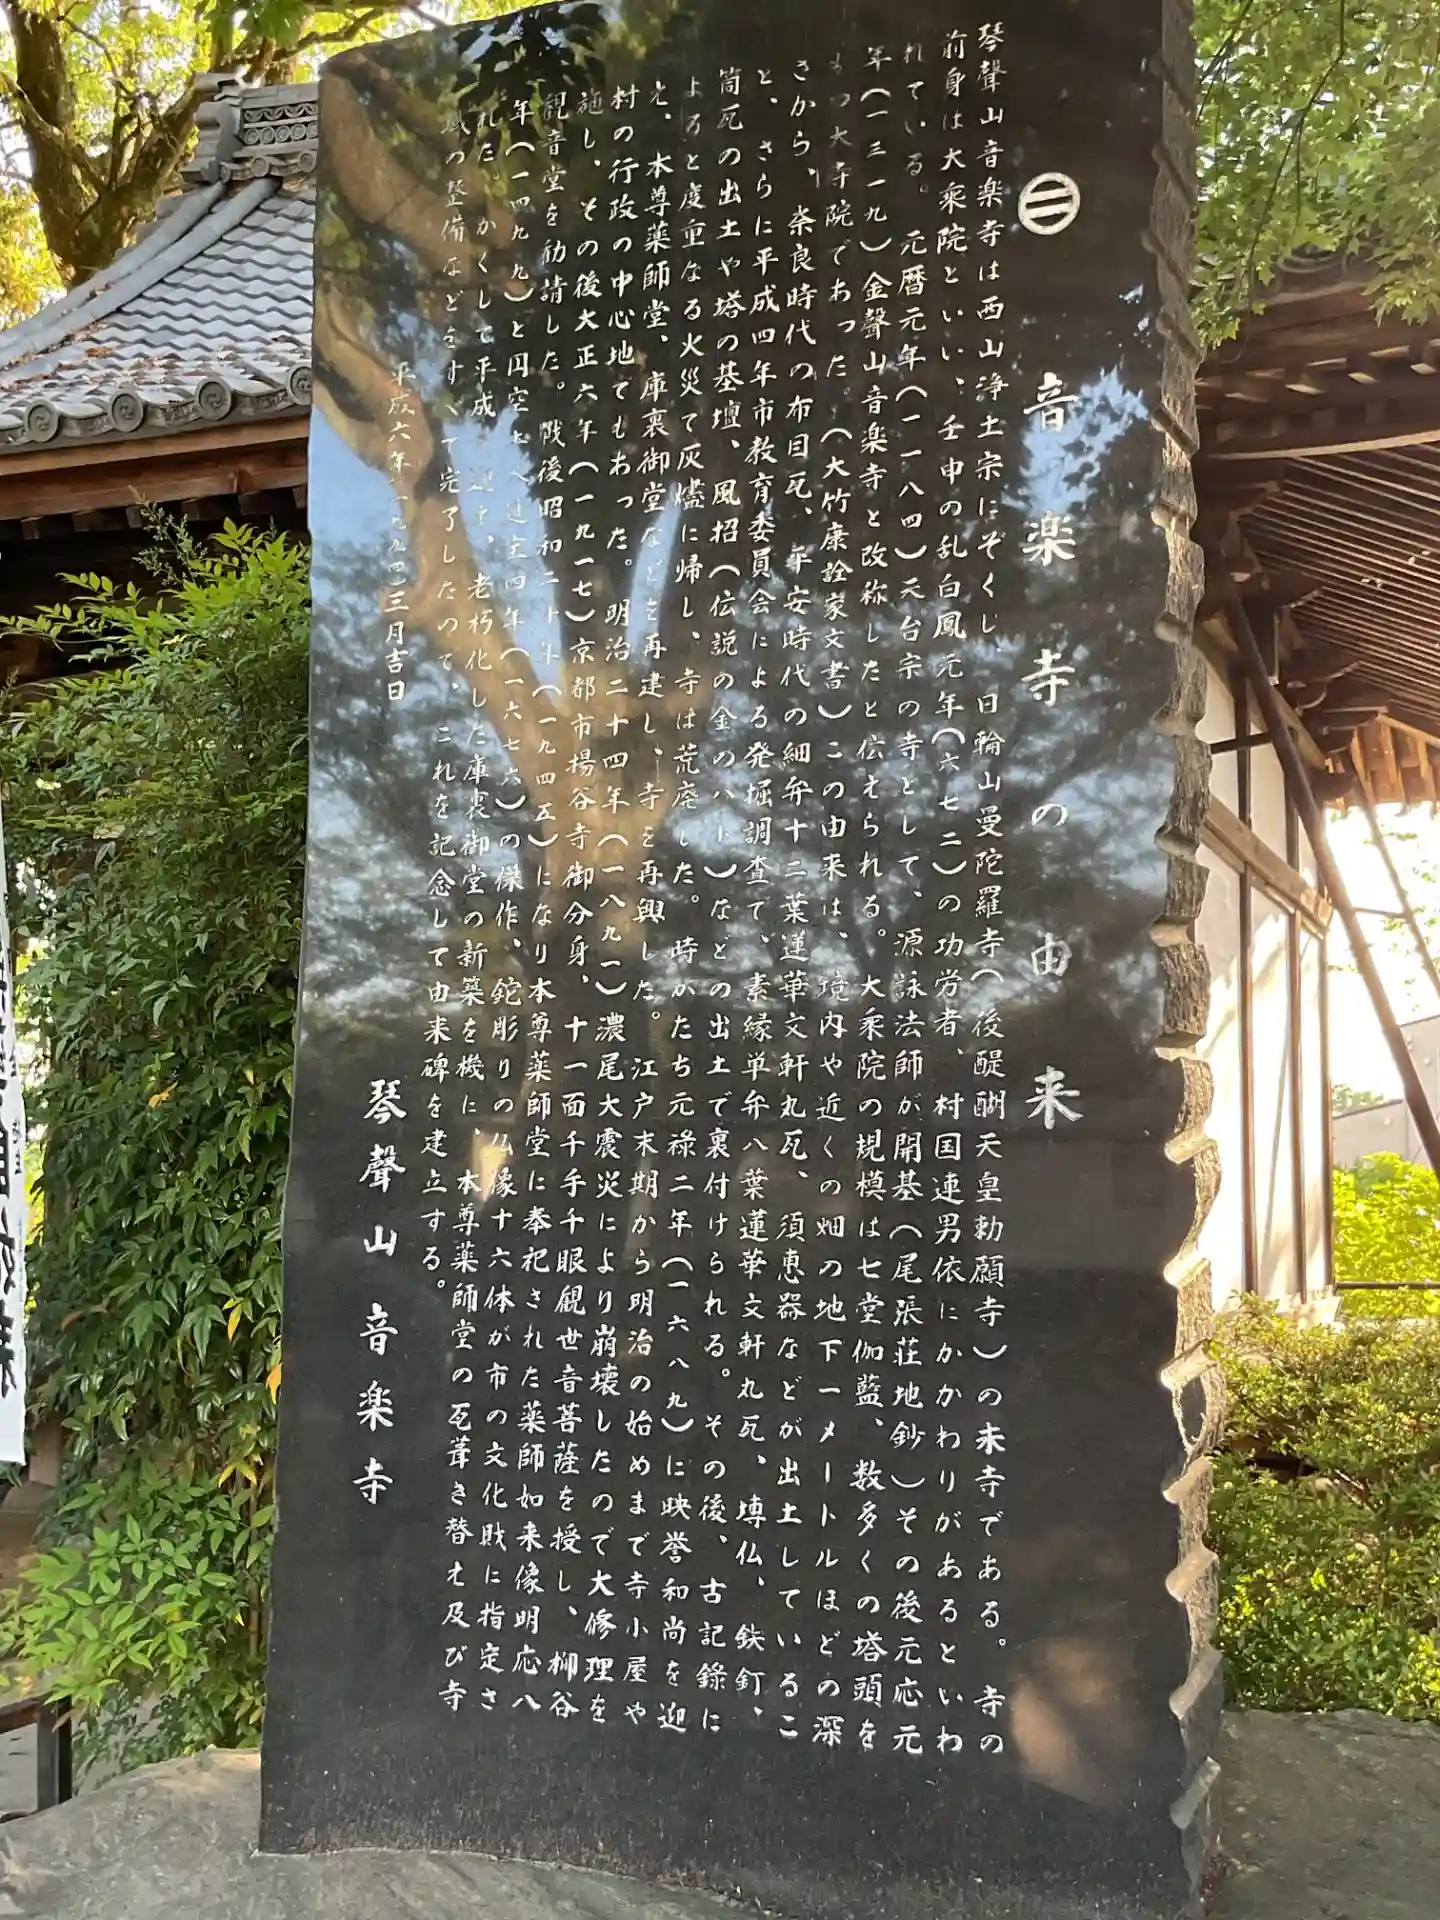 音楽寺の由来
琴聲山音楽寺は西山浄土宗にぞくし、日輪山曼陀羅寺(後醍醐天皇勅願寺)の末寺である。寺の
前身は大乘院といい、壬申の乱白鳳元年(六七二)の功労者、村国連男依にかかわりがあるといわ
れている。元暦元年(一一八四)天台宗の寺として、源詠法師が開基(尾張荘地鈔)その後元応元
年(一三一九)金聲山音楽寺と改称したと伝えられる。大乘院の規模は七堂伽藍、数多くの塔頭を
もつ大寺院であった。(大竹康詮家文書)この由来は、境内や近くの畑の地下一メートルほどの深
さから、奈良時代の布目瓦、平安時代の細弁十二葉蓮華文軒丸瓦、須恵器などが出土しているこ
と、さらに平成四年市教育委員会による発掘調査で、素縁単弁八葉蓮華文軒丸瓦、塼仏、鉄釘、
筒瓦の出土や塔の基壇、風招(伝説の金のハト)などの出土で裏付けられる。その後、古記録に
よると度重なる火災で灰燼に帰し、寺は荒廃した。時がたち元禄二年(一六八九)に映誉和尚を迎
え、本尊薬師堂、庫裏御堂などを再建し、寺を再興した。江戸末期から明治の始めまで寺小屋や
村の行政の中心地でもあった。明治二十四年(一八九一)濃尾大震災により崩壊したので大修理を
施し、その後大正六年(一九一七)京都市楊谷寺御分身、十一面千手千眼観世音菩薩を授し、柳谷
観音堂を勧請した。戦後昭和二十年(一九四五)になり本尊薬師堂に奉祀された薬師如来像明応八
年(一四九九)と円空上人延宝四年(一六七六)の傑作、鉈彫りの仏像十六体が市の文化財に指定さ
れた。かくして平成を迎え、老朽化した庫裏御堂の新築を機に、本尊薬師堂の瓦葺き替え及び寺
域の整備などをすべて完了したので、これを記念して由来碑を建立する。
平成六年(一九九四)三月吉日
琴聲山音楽寺